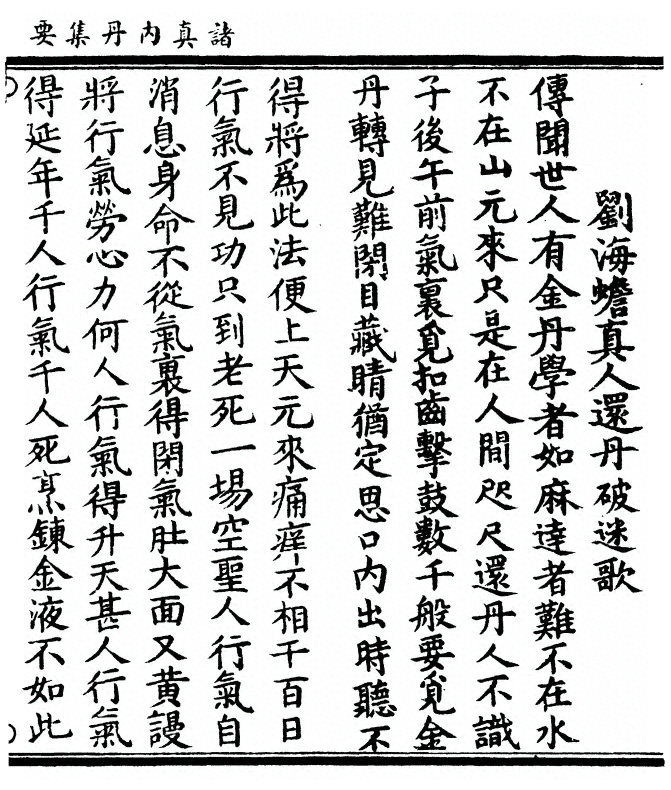 諸真内丹集要
劉海蟾真人還丹破迷歌
傳聞世人有金丹學者如麻達者難不在水
不在山元來只是在人間咫尺還丹人不識
子後午前氣裏覓扣齒擊鼓數千般要覓金
丹轉見難閉目藏睛猶定思口内出時聽不
得將為此法便上天元來痛痒不相干百日
行氣不見功只到老死一場空聖人行氣自
消息身命不從氣裏得閑氣肚大面又黄謾
將行氣勞心力何人行氣得升天甚人行氣
得延年千人行氣千人死烹鍊金液不如此